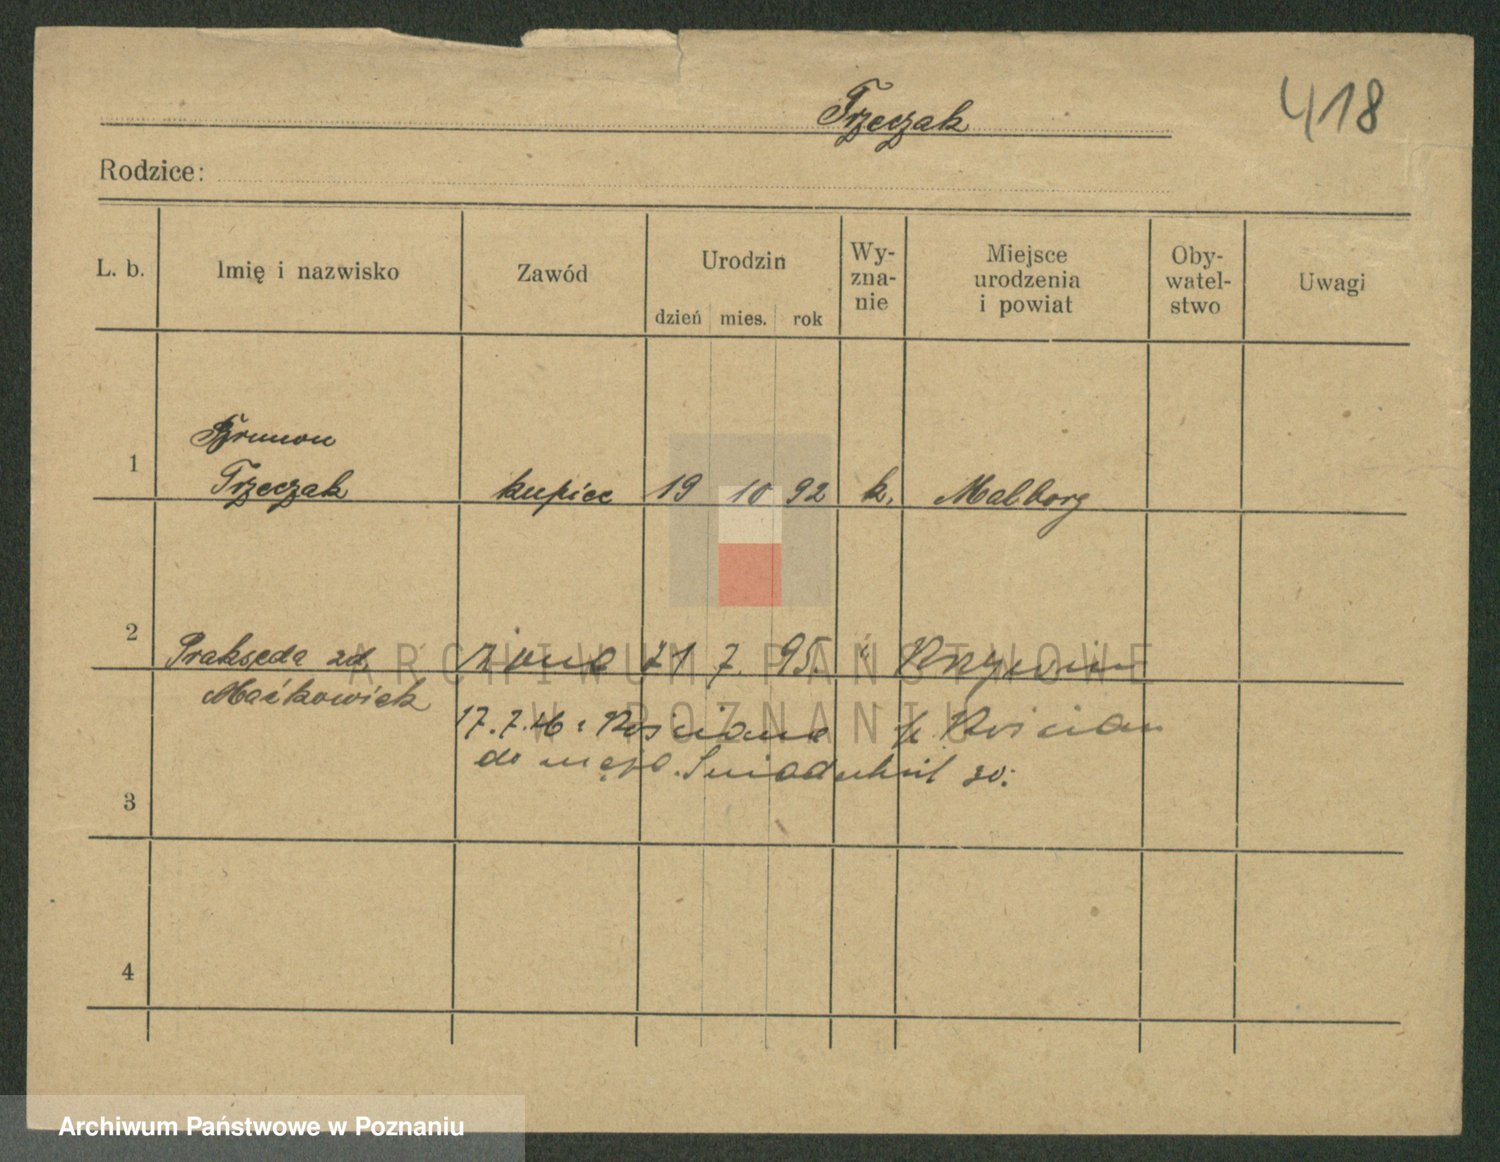 Trzeczak
418
Rodzice:
L. b.
Imię i nazwisko
Zawód
Urodzin
dzień mies. rok
Wy-
zna-
nie
Miejsce
urodzenia
i powiat
Oby-
watel-
stwo
Uwagi
1
Brunon
Trzeczak kupiec 19 10 92 k. Malborg
2
Prakseda zd. żona 21 7. 95. " Krzywin
Maćkowiak
17.7.26 z Kościana p. Kościan
do męża. Śniadeckich 20.
3
4
ARCHIWUM PAŃSTWOWE
W POZNANIU
Archiwum Państwowe w Poznaniu